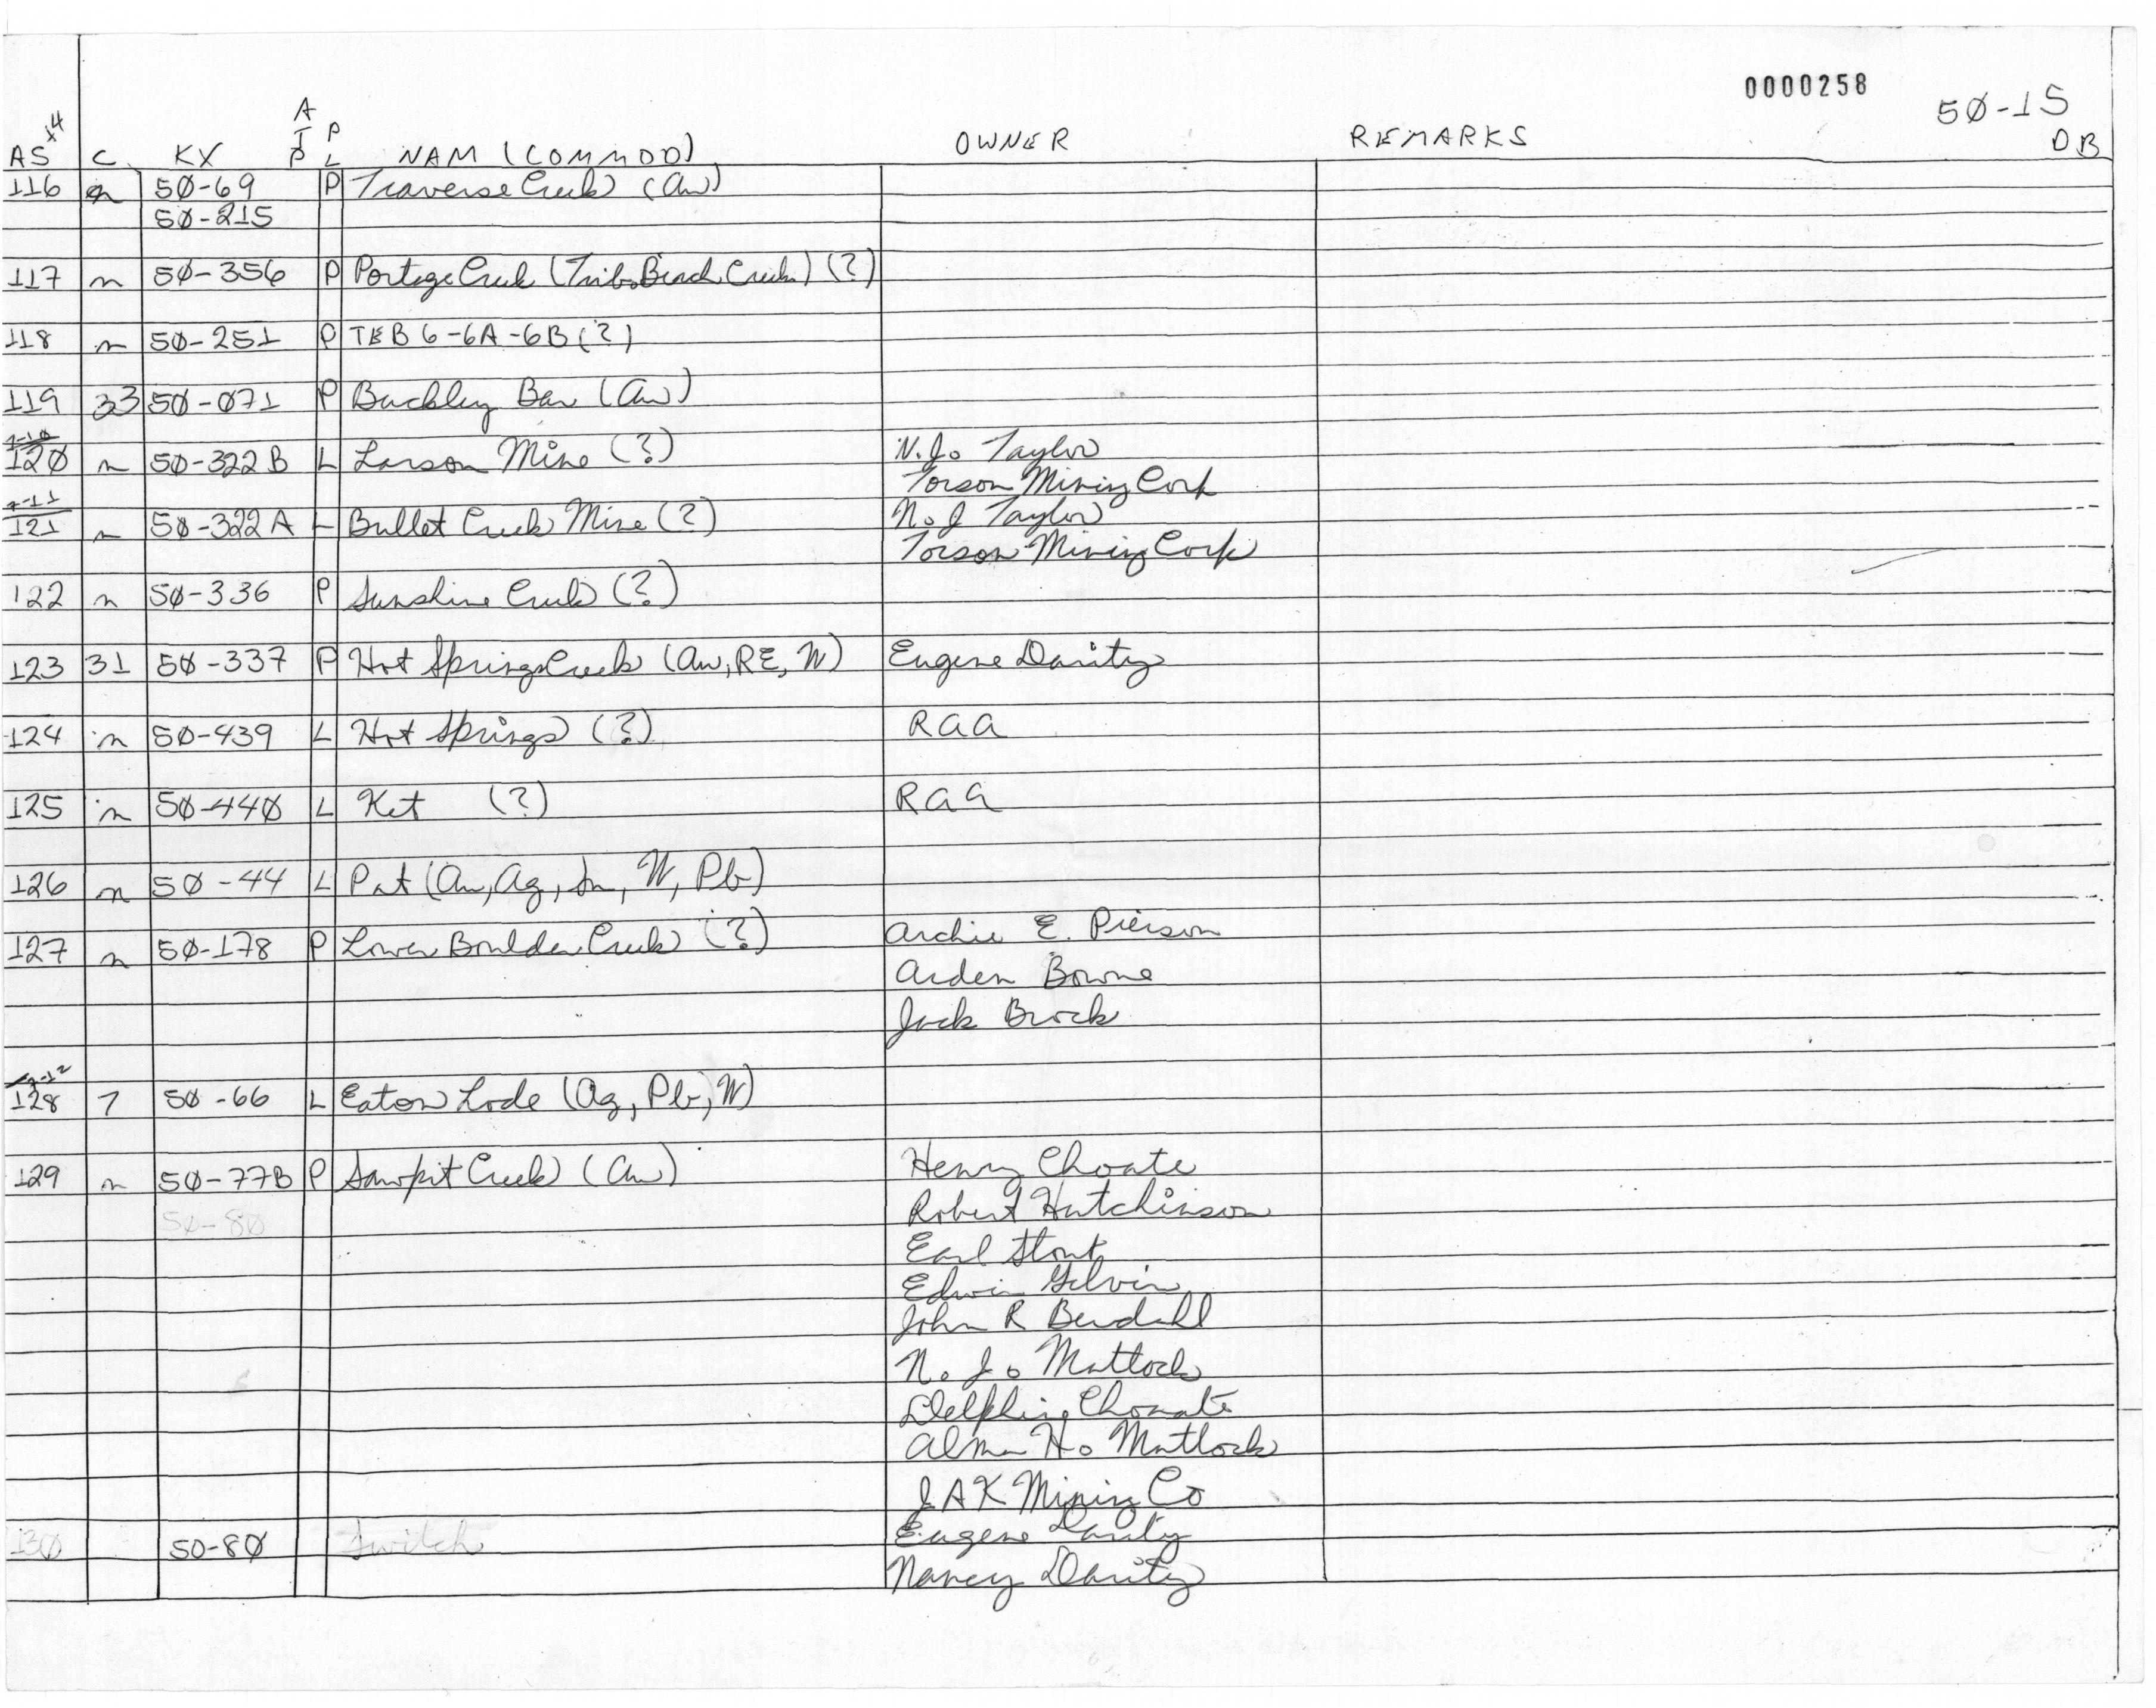 0000258
50-15
DB
AS +4 C KX ATP PL NAM (COMMOD) OWNER REMARKS
116 n 50-69 P Traverse Creek (Au)
50-215
117 n 50-356 P Portage Creek (Trib. Birch Creek) (?)
118 n 50-251 P TEB 6-6A-6B (?)
119 33 50-071 P Buckley Bar (Au)
7-10
120 n 50-322B L Larson Mine (?) N.J. Taylor
Torson Mining Corp
7-11
121 n 50-322A L Bullet Creek Mine (?) N.J Taylor
Torson Mining Corp
122 n 50-336 P Sunshine Creek (?)
123 31 50-337 P Hot Springs Creek (Au, RE, W) Eugene Darity
124 n 50-439 L Hot Springs (?) RAA
125 n 50-440 L Ket (?) RAA
126 n 50-44 L Pat (Au, Ag, Sn, W, Pb)
127 n 50-178 P Lower Boulder Creek (?) Archie E. Pierson
Arden Bowne
Jack Brock
7-12
128 7 50-66 L Eaton Lode (Ag, Pb, W)
129 n 50-77B P Sawpit Creek (Au) Henry Choate
50-80 Robert Hutchinson
Earl Stout
Edwin Gelvin
John R Berdahl
N.J. Matlock
Delphine Choate
Alma H. Matlock
JAK Mining Co
130 50-80 Twitch Eugene Darity
Nancy Darity